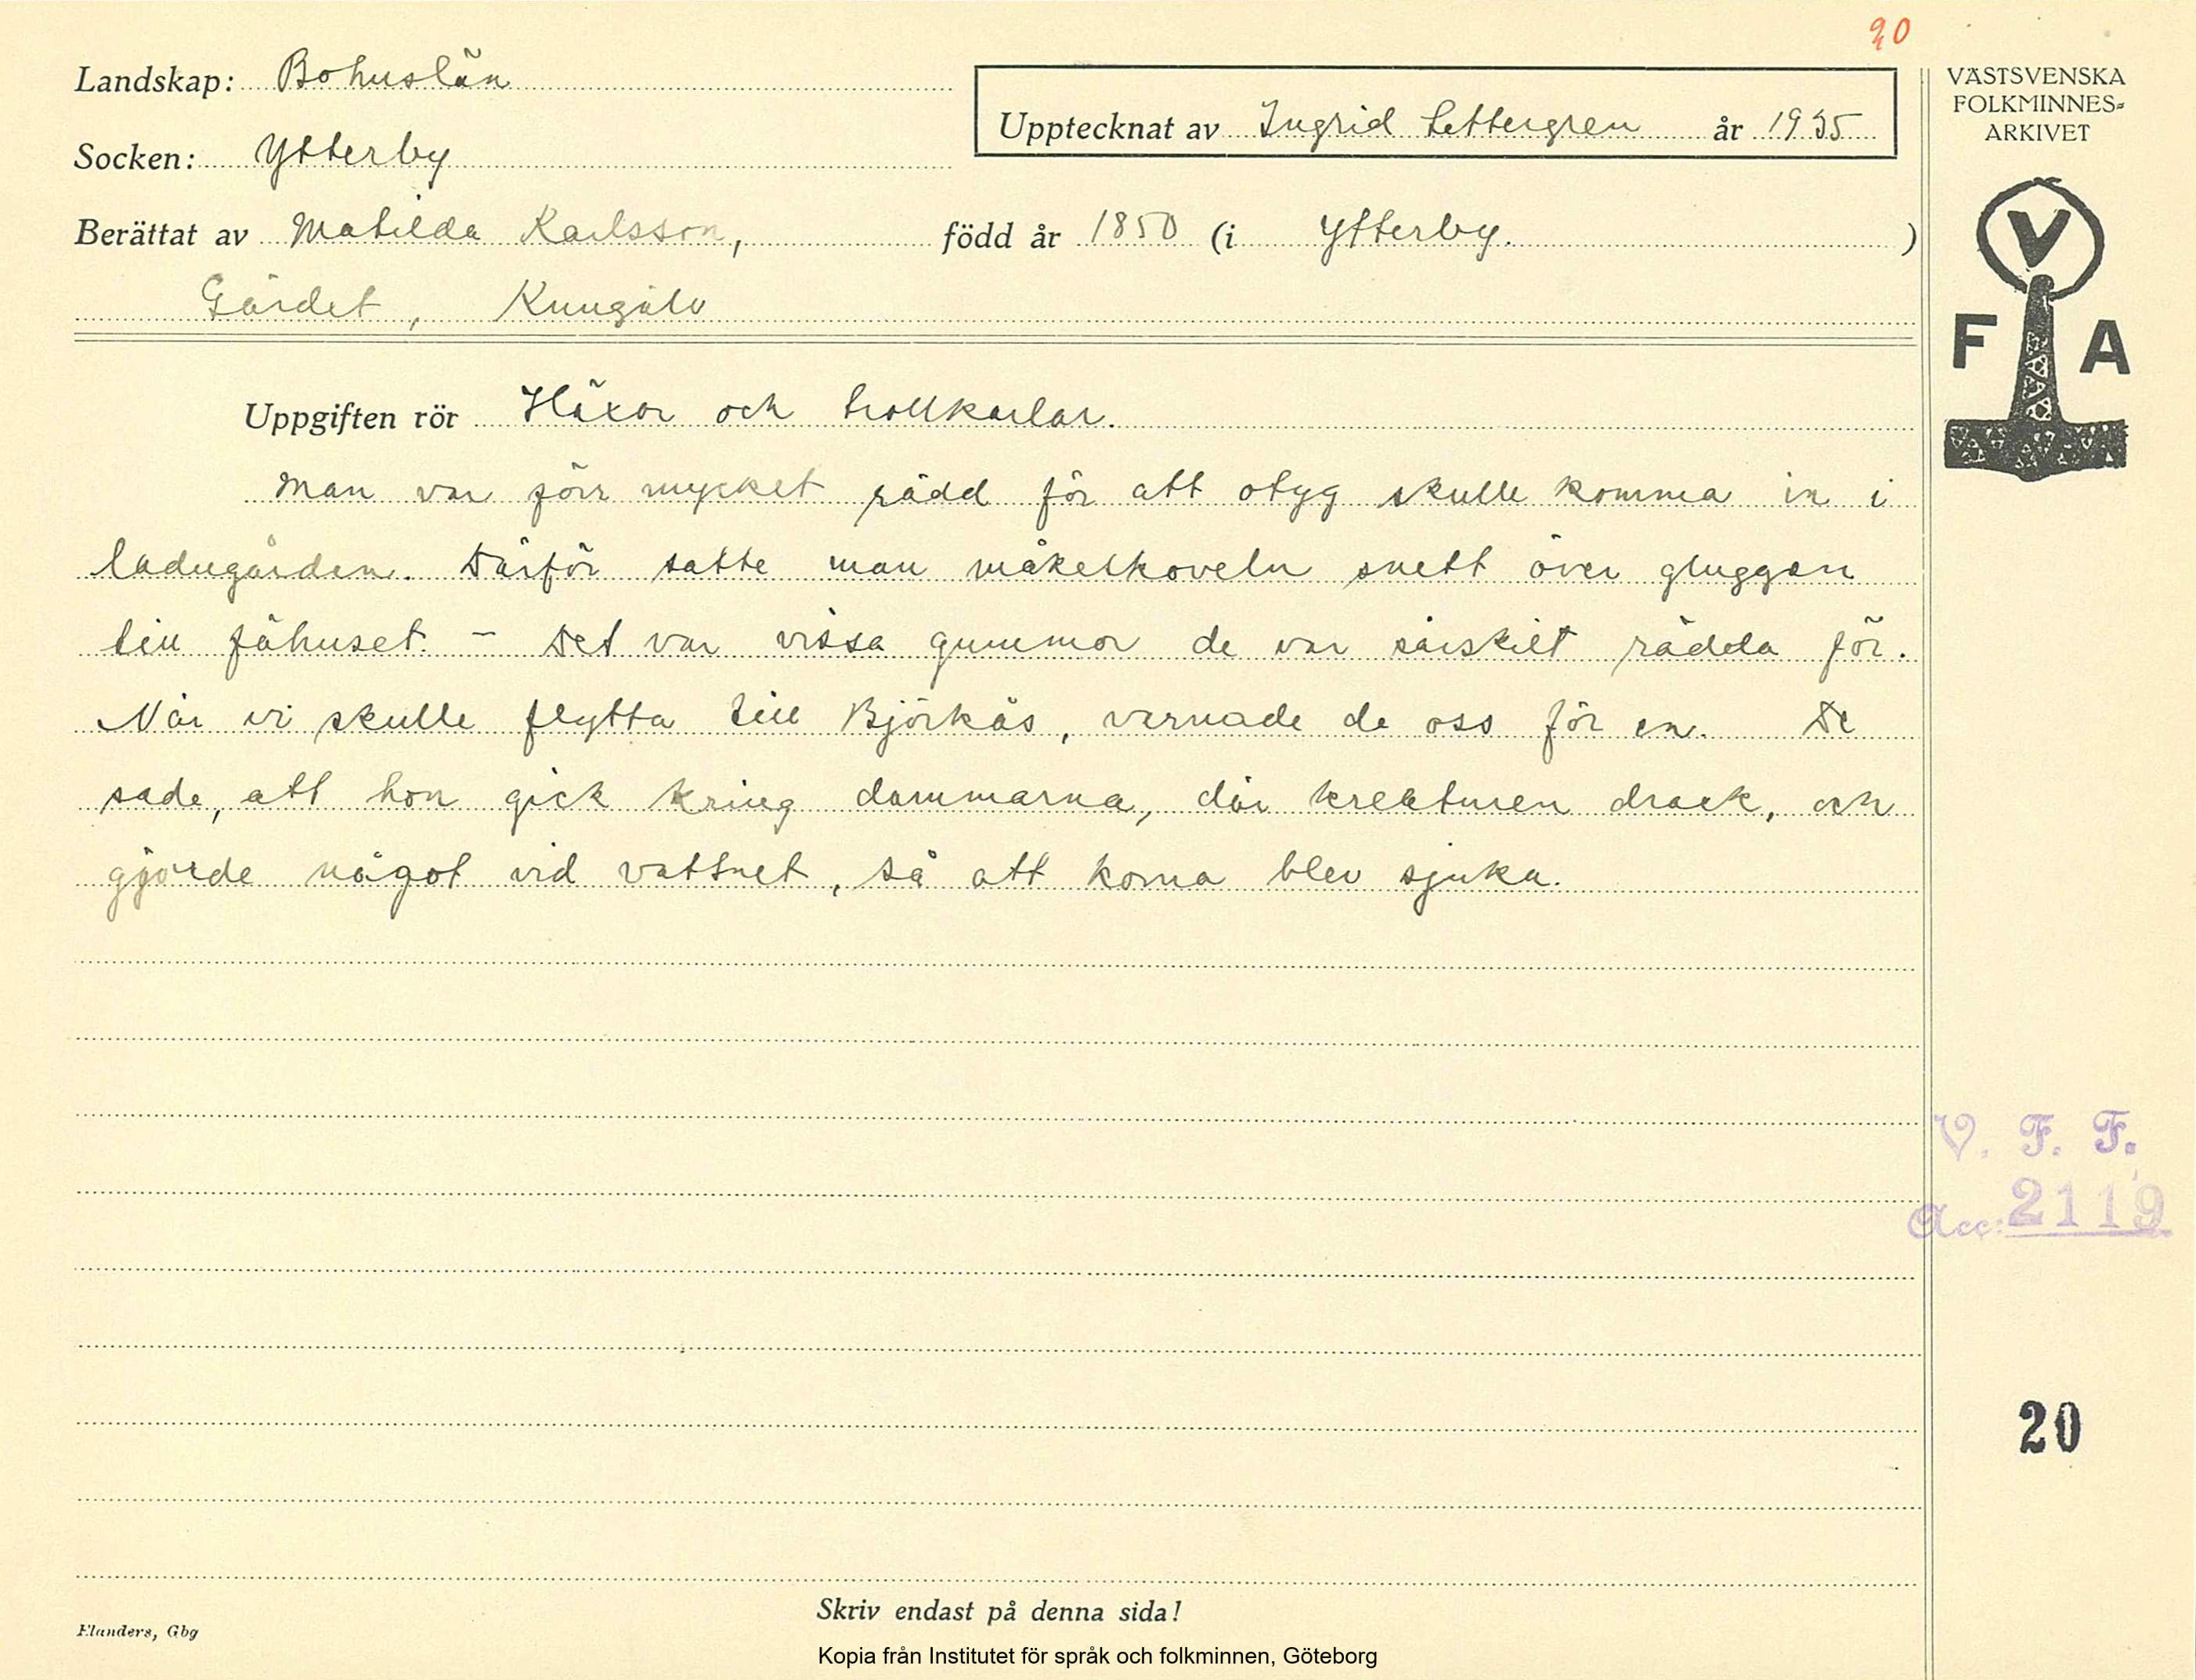 20
Landskap: Bohuslän
Upptecknat av Ingrid Settergren år 1935
Socken: Ytterby
Berättat av Matilda Karlsson, född år 1850 (i Ytterby.)
Gärdet, Kungälv
VÄSTSVENSKA
FOLKMINNES-
ARKIVET
V
F A
Uppgiften rör Häxor och trollkarlar.
Man var förr mycket rädd för att otyg skulle komma in i
ladugården. Därför satte man snett över gluggen
till fähuset. - Det var vissa gummor de var särskilt rädda för.
När vi skulle flytta till Björkås, varnade de oss för en. De
sade, att hon gick kring dammarna, där kreaturen drack, och
gjorde något vid vattnet, så att korna blev sjuka.
V. F. F.
Acc: 2119
20
Skriv endast på denna sida!
Elanders, Gbg
Kopia från Institutet för språk och folkminnen, Göteborg